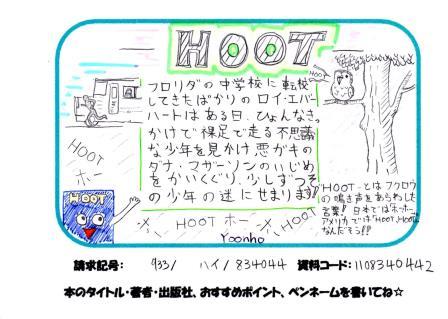 HOOT
フロリダの中学校に転校
してきたばかりのロイ・エバー
ハートはある日、ひょんなきっ
かけで裸足で走る不思議
な少年を見かけ、悪ガキの
ダナ・マザーソンのいじめ
をかいくぐり、少しずつそ
の少年の謎にせまります!
HOOT
HOOT
ホー
HOOT
HOOT ホー
HOOT
Yoonho
HOOT とはフクロウ
の鳴き声をあらわした
言葉! 日本では"ホーホー"
アメリカでは"HOOT,HOOT"
なんだそう!!
請求記号: 933/ ハイ/ 834044 資料コード:1108340442
本のタイトル・著者・出版社、おすすめポイント、ペンネームを書いてね☆